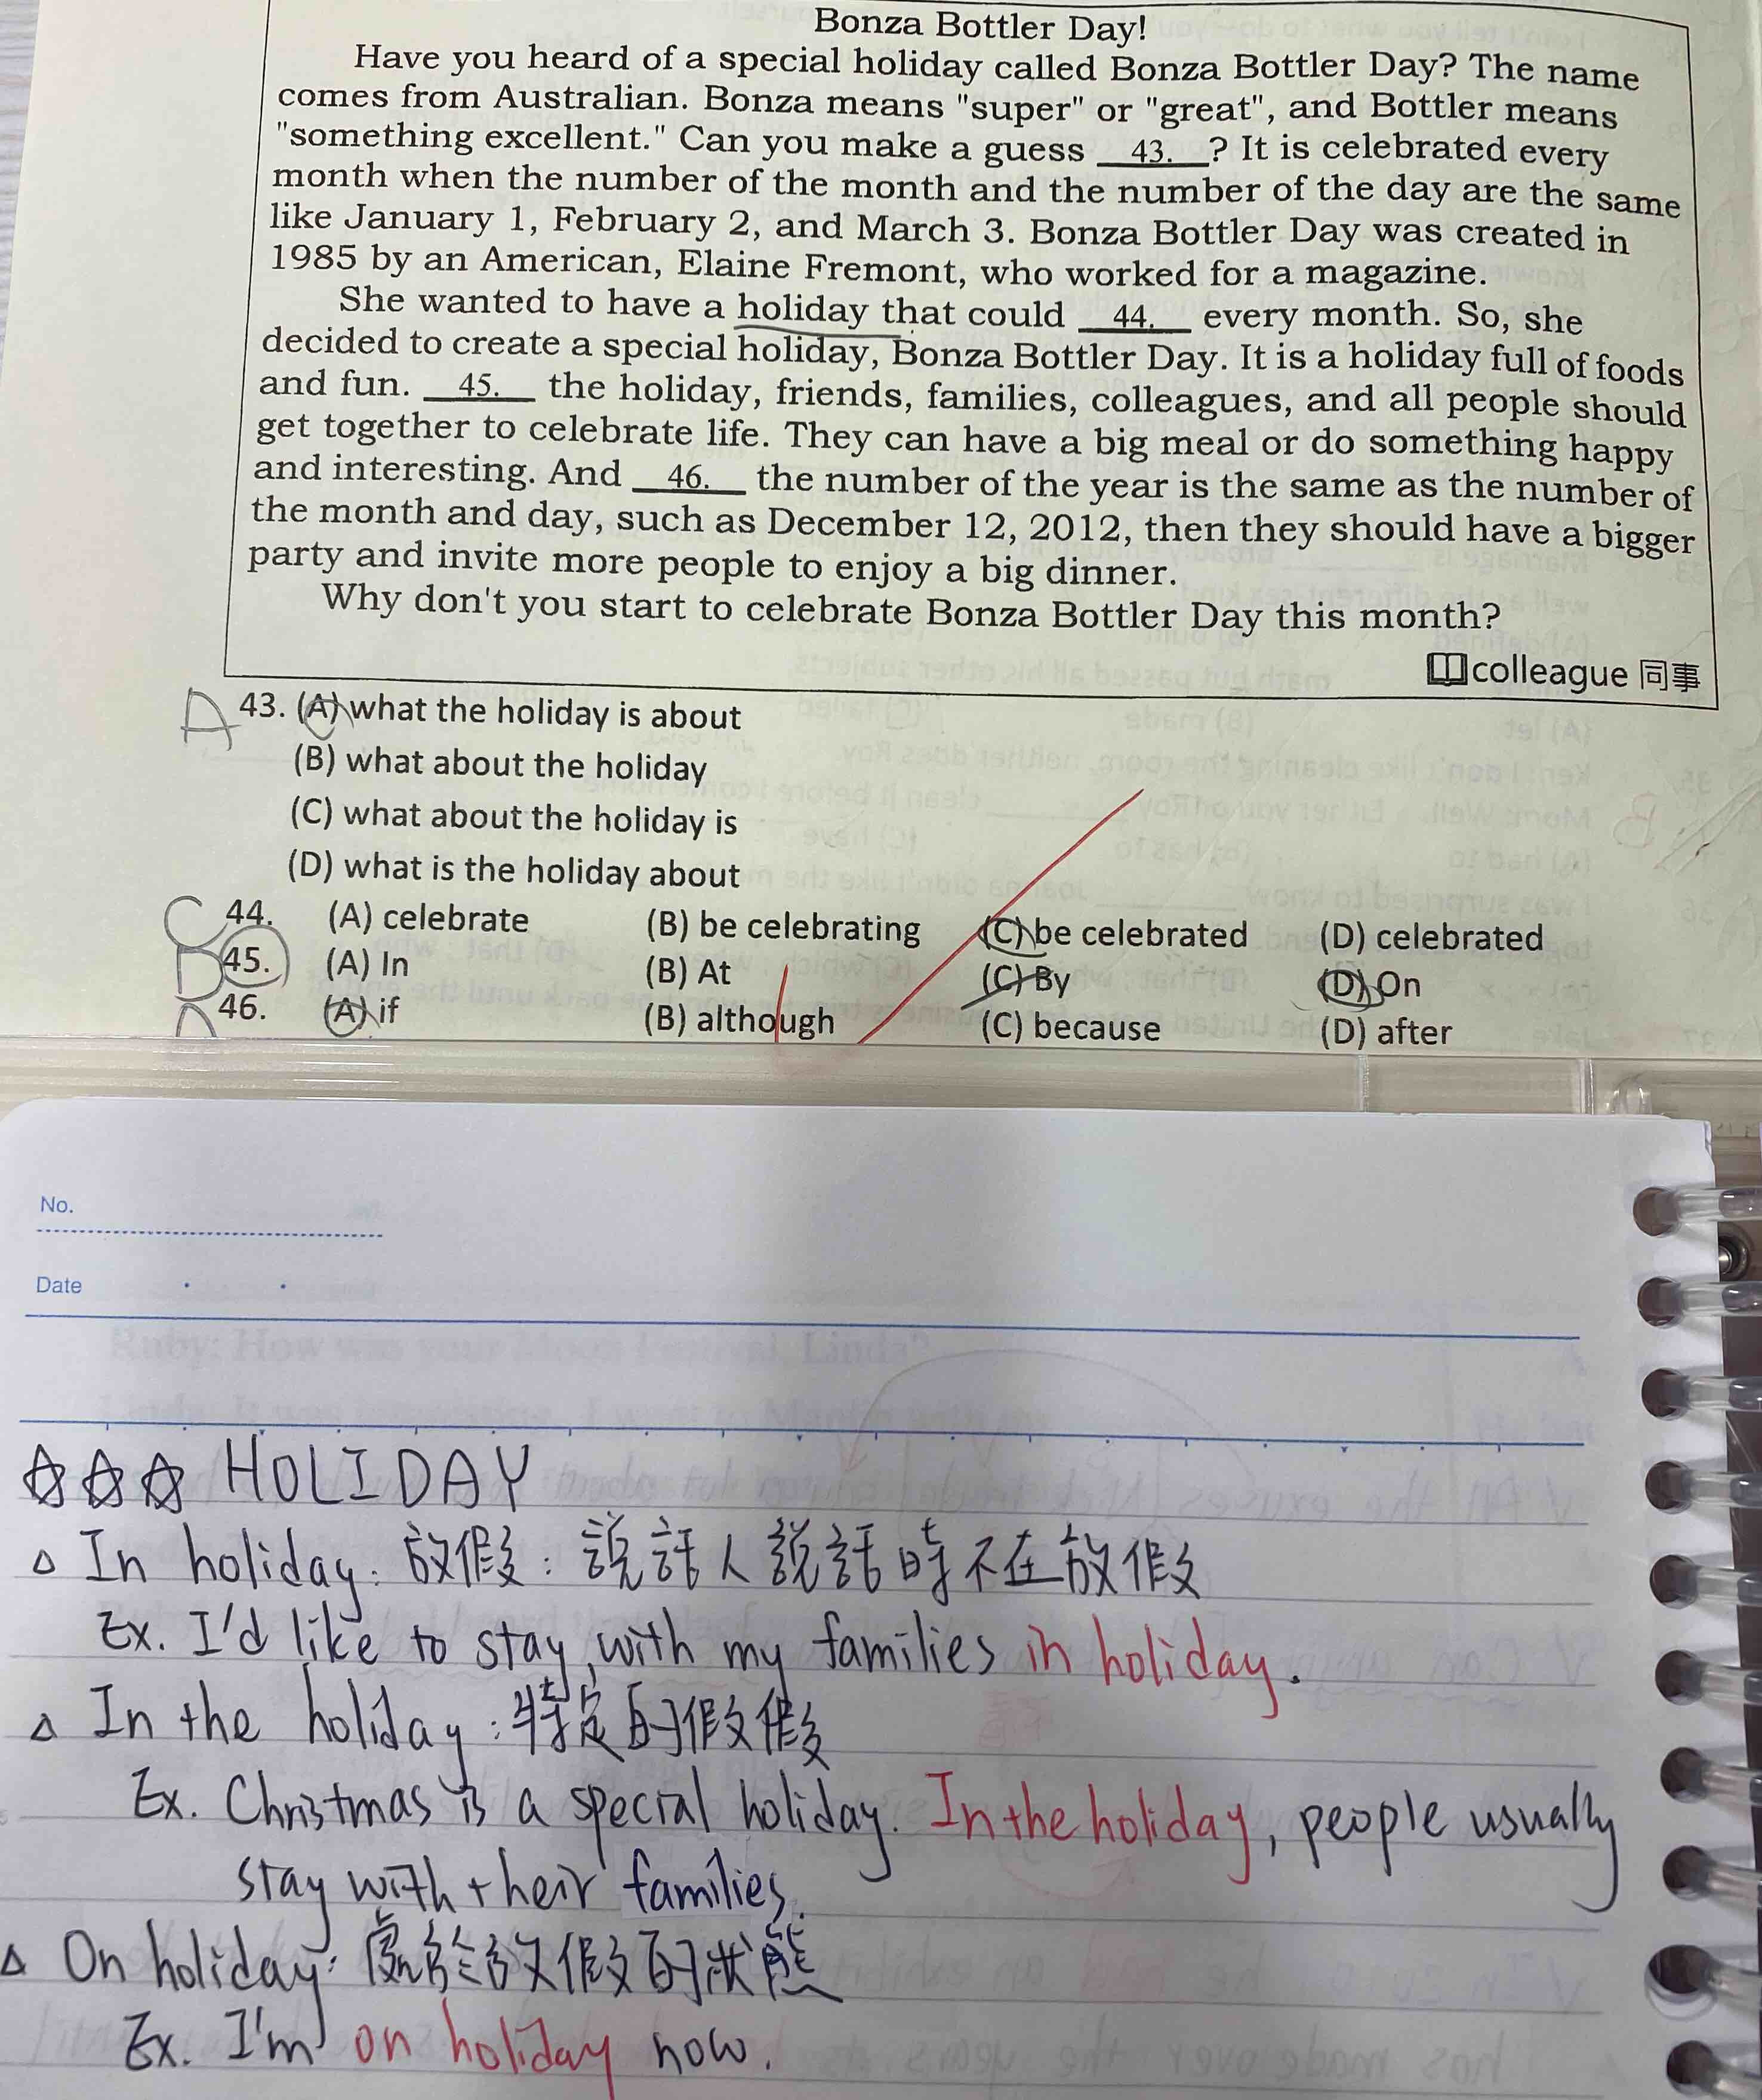 Bonza Bottler Day!
Have you heard of a special holiday called Bonza Bottler Day? The name
comes from Australian. Bonza means "super" or "great", and Bottler means
"something excellent." Can you make a guess 43. ? It is celebrated every
month when the number of the month and the number of the day are the same
like January 1, February 2, and March 3. Bonza Bottler Day was created in
1985 by an American, Elaine Fremont, who worked for a magazine.
She wanted to have a holiday that could 44. every month. So, she
decided to create a special holiday, Bonza Bottler Day. It is a holiday full of foods
and fun. 45. the holiday, friends, families, colleagues, and all people should
get together to celebrate life. They can have a big meal or do something happy
and interesting. And 46. the number of the year is the same as the number of
the month and day, such as December 12, 2012, then they should have a bigger
party and invite more people to enjoy a big dinner.
Why don't you start to celebrate Bonza Bottler Day this month?
colleague 同事
A 43. (A) what the holiday is about
(B) what about the holiday
(C) what about the holiday is
(D) what is the holiday about
C 44. (A) celebrate (B) be celebrating (C) be celebrated (D) celebrated
D 45. (A) In (B) At (C) By (D) On
A 46. (A) if (B) although (C) because (D) after
No.
Date
☆☆☆ HOLIDAY
△ In holiday: 放假: 說話人說話時不在放假
Ex. I'd like to stay with my families in holiday.
△ In the holiday: 特定的假假
Ex. Christmas is a special holiday. In the holiday, people usually
stay with their families.
△ On holiday: 處於放假的狀態
Ex. I'm on holiday now.